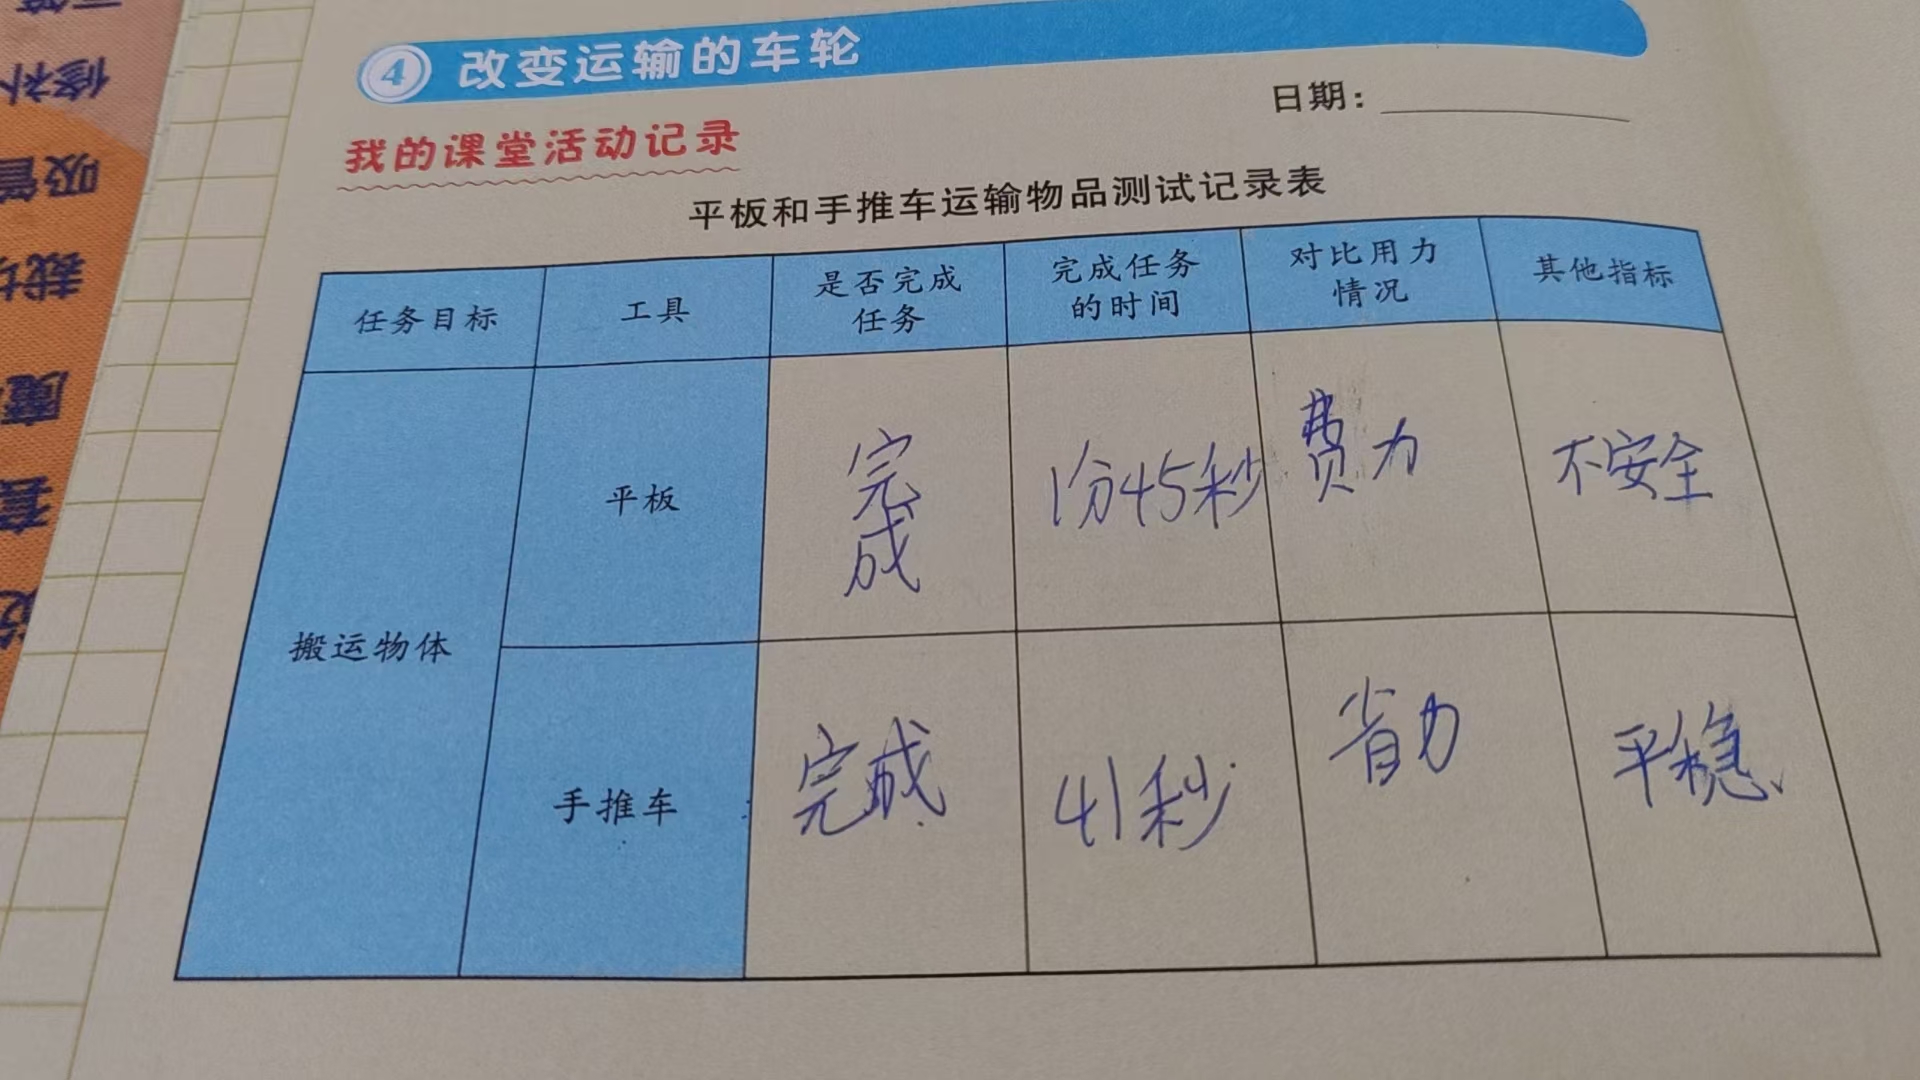 4 改变运输的车轮
日期：
我的课堂活动记录
平板和手推车运输物品测试记录表
任务目标 工具 是否完成任务 完成任务的时间 对比用力情况 其他指标
搬运物体
平板 完成 1分45秒 费力 不安全
手推车 完成 41秒 省力 平稳
修补
吸管
魔
套